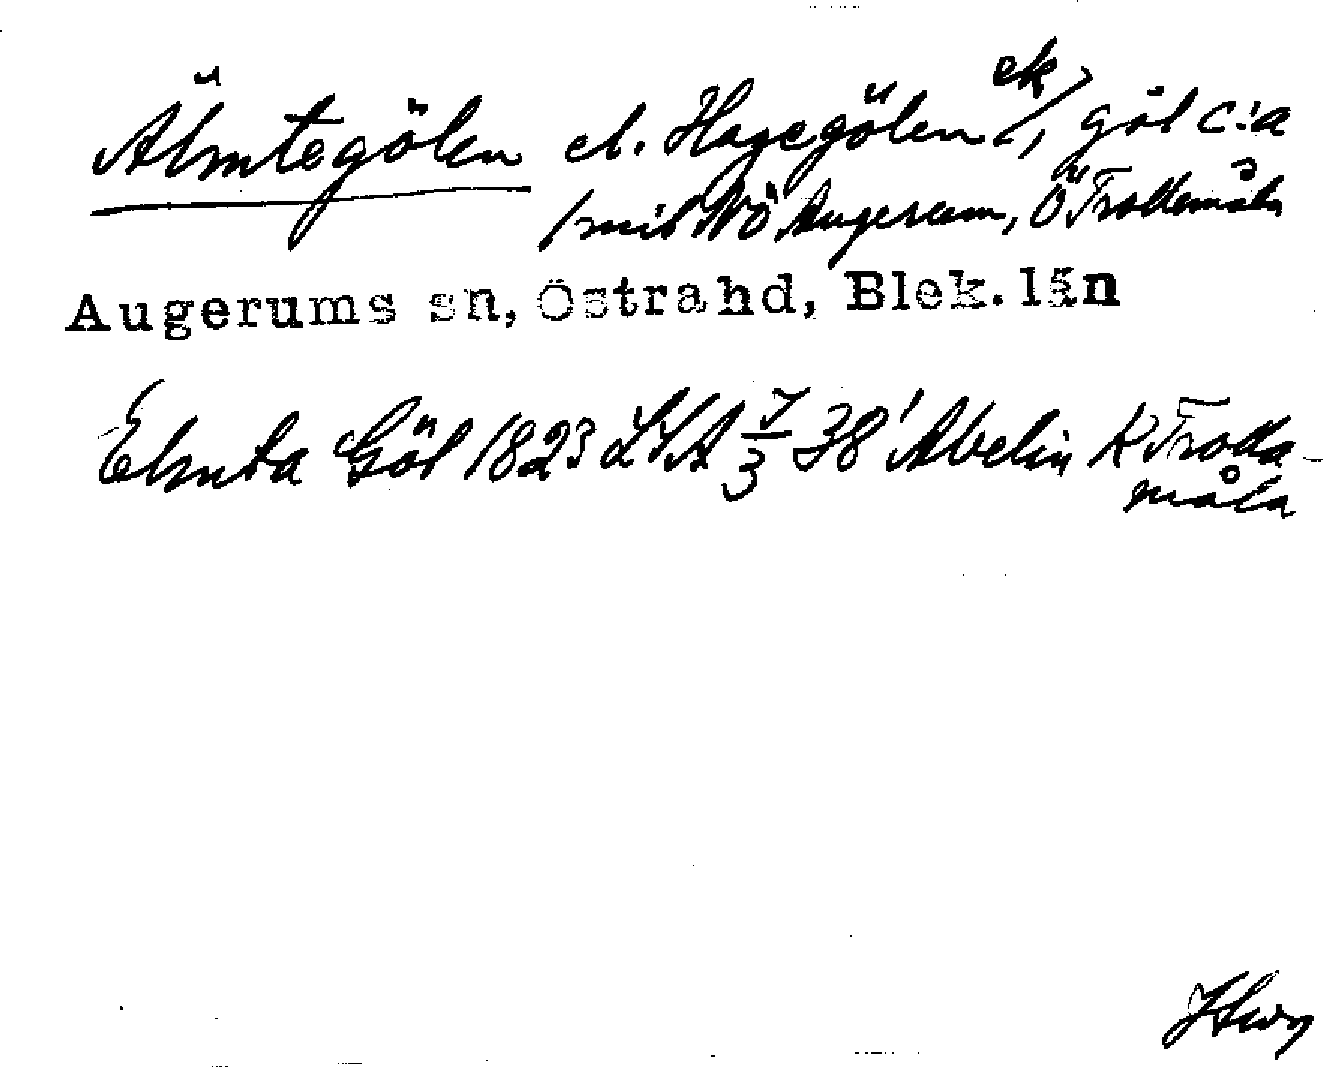 Älmtegölen el. Hagegölen ek/, göl c:a
1 mil NÖ Augerum, Ö Trollemåla
Augerums sn, Östrahd, Blek. län
Elmta Göl 1823 LSA 7/3 38' Abelin K Troda-
måla